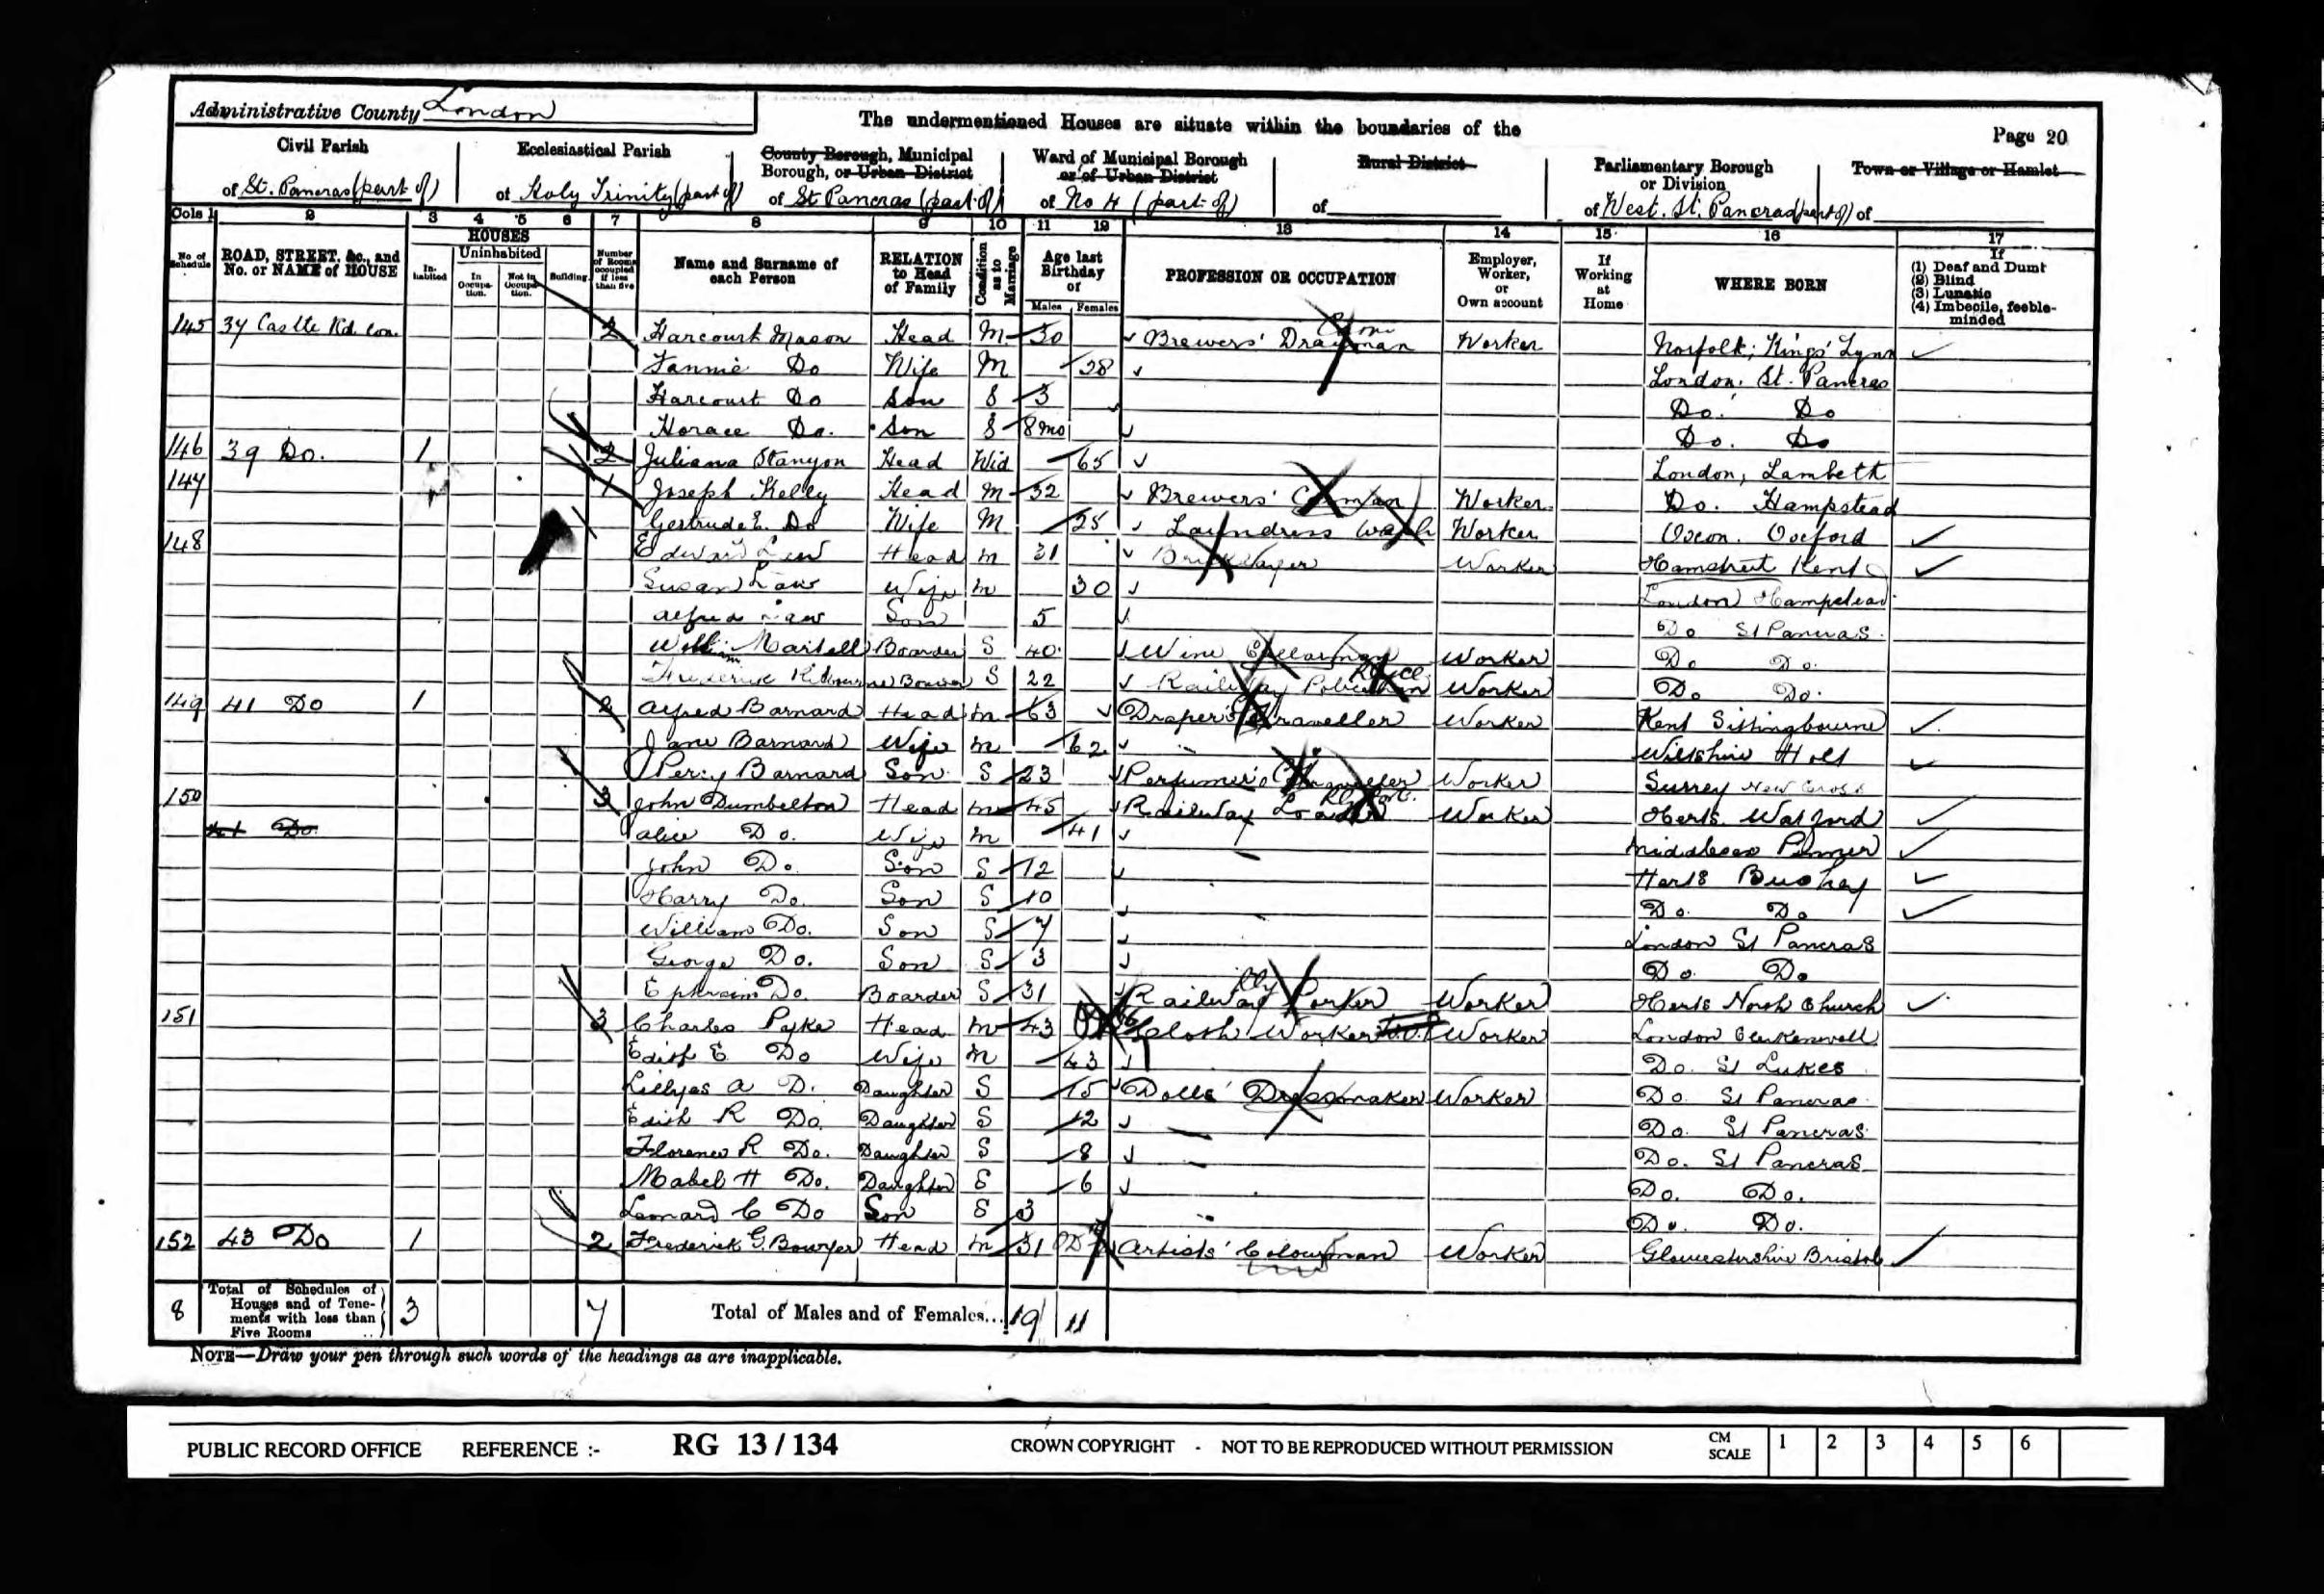 Administrative County London
The undermentioned Houses are situate within the boundaries of the
Page 20
Civil Parish of St. Pancras (part of)
Ecclesiastical Parish of Holy Trinity (part of)
County Borough, Municipal Borough, or Urban District of St Pancras (part of)
Ward of Municipal Borough or of Urban District of No 4 (part of)
Rural District of
Parliamentary Borough or Division of West. St. Pancras (part of)
Town or Village or Hamlet of
Cols 1 2 3 4 5 6 7 8 9 10 11 12 13 14 15 16 17
No of Schedule
ROAD, STREET, &c., and No. or NAME of HOUSE
HOUSES
Inhabited
Uninhabited
In Occupation.
Not in Occupation.
Building
Number of Rooms occupied if less than five
Name and Surname of each Person
RELATION to Head of Family
Condition as to Marriage
Age last Birthday of
Males Females
PROFESSION OR OCCUPATION
Employer, Worker, or Own account
If Working at Home
WHERE BORN
If
(1) Deaf and Dumb
(2) Blind
(3) Lunatic
(4) Imbecile, feeble-minded
145 37 Castle Rd. con. 2 Harcourt Mason Head M 30 Brewers' Drayman Worker Norfolk; Kings' Lynn
Fannie Do Wife M 28 London. St. Pancras
Harcourt Do Son S 3 Do. Do
Horace Do. Son S 8mo Do. Do
146 39 Do. 1 2 Juliana Stanyon Head Wid 65 London, Lambeth
147 1 Joseph Kelly Head M 32 Brewers' Carman Worker Do. Hampstead
Gertrude E. Do Wife M 25 Laundress Wash Worker Oxon. Oxford
148 Edward Law Head M 31 Bricklayer Worker Kent
Susan Law Wife M 30 London Hampstead
Alfred Law Son 5 Do St Pancras
William Martell Boarder S 40 Wine Cellarman Worker Do Do.
Frederick Boarder S 22 Railway Policeman Worker Do Do.
149 41 Do 1 2 Alfred Barnard Head M 63 Draper's Traveller Worker Kent Sittingbourne
Jane Barnard Wife M 62 Wiltshire Holt
Percy Barnard Son S 23 Perfumer's Traveller Worker Surrey New Cross
150 3 John Dumbelton Head M 45 Railway Loader Worker Herts. Watford
41 Do. Alice Do. Wife M 41 Middlesex Pinner
John Do. Son S 12 Herts Bushey
Harry Do. Son S 10 Do. Do
William Do. Son S 7 London St Pancras
George Do. Son S 3 Do. Do
Ephraim Do. Boarder S 31 Railway Porter Worker Herts North Church
151 3 Charles Pyke Head M 43 Cloth Worker Worker London Clerkenwell
Edith E Do Wife M 43 Do. St Lukes
Lillyas A D. Daughter S 15 Dolls' Dressmaker Worker Do St Pancras
Edith R Do. Daughter S 12 Do. St Pancras
Florence R Do. Daughter S 8 Do. St Pancras
Mabel H Do. Daughter S 6 Do. Do.
Leonard C Do Son S 3 Do. Do.
152 43 Do 1 2 Frederick G. Bowyer Head M 31 Artists' Colourman Worker Gloucestershire Bristol
8 Total of Schedules of Houses and of Tenements with less than Five Rooms 3 7 Total of Males and of Females... 19 11
NOTE—Draw your pen through such words of the headings as are inapplicable.
PUBLIC RECORD OFFICE REFERENCE :- RG 13 / 134 CROWN COPYRIGHT - NOT TO BE REPRODUCED WITHOUT PERMISSION CM SCALE 1 2 3 4 5 6